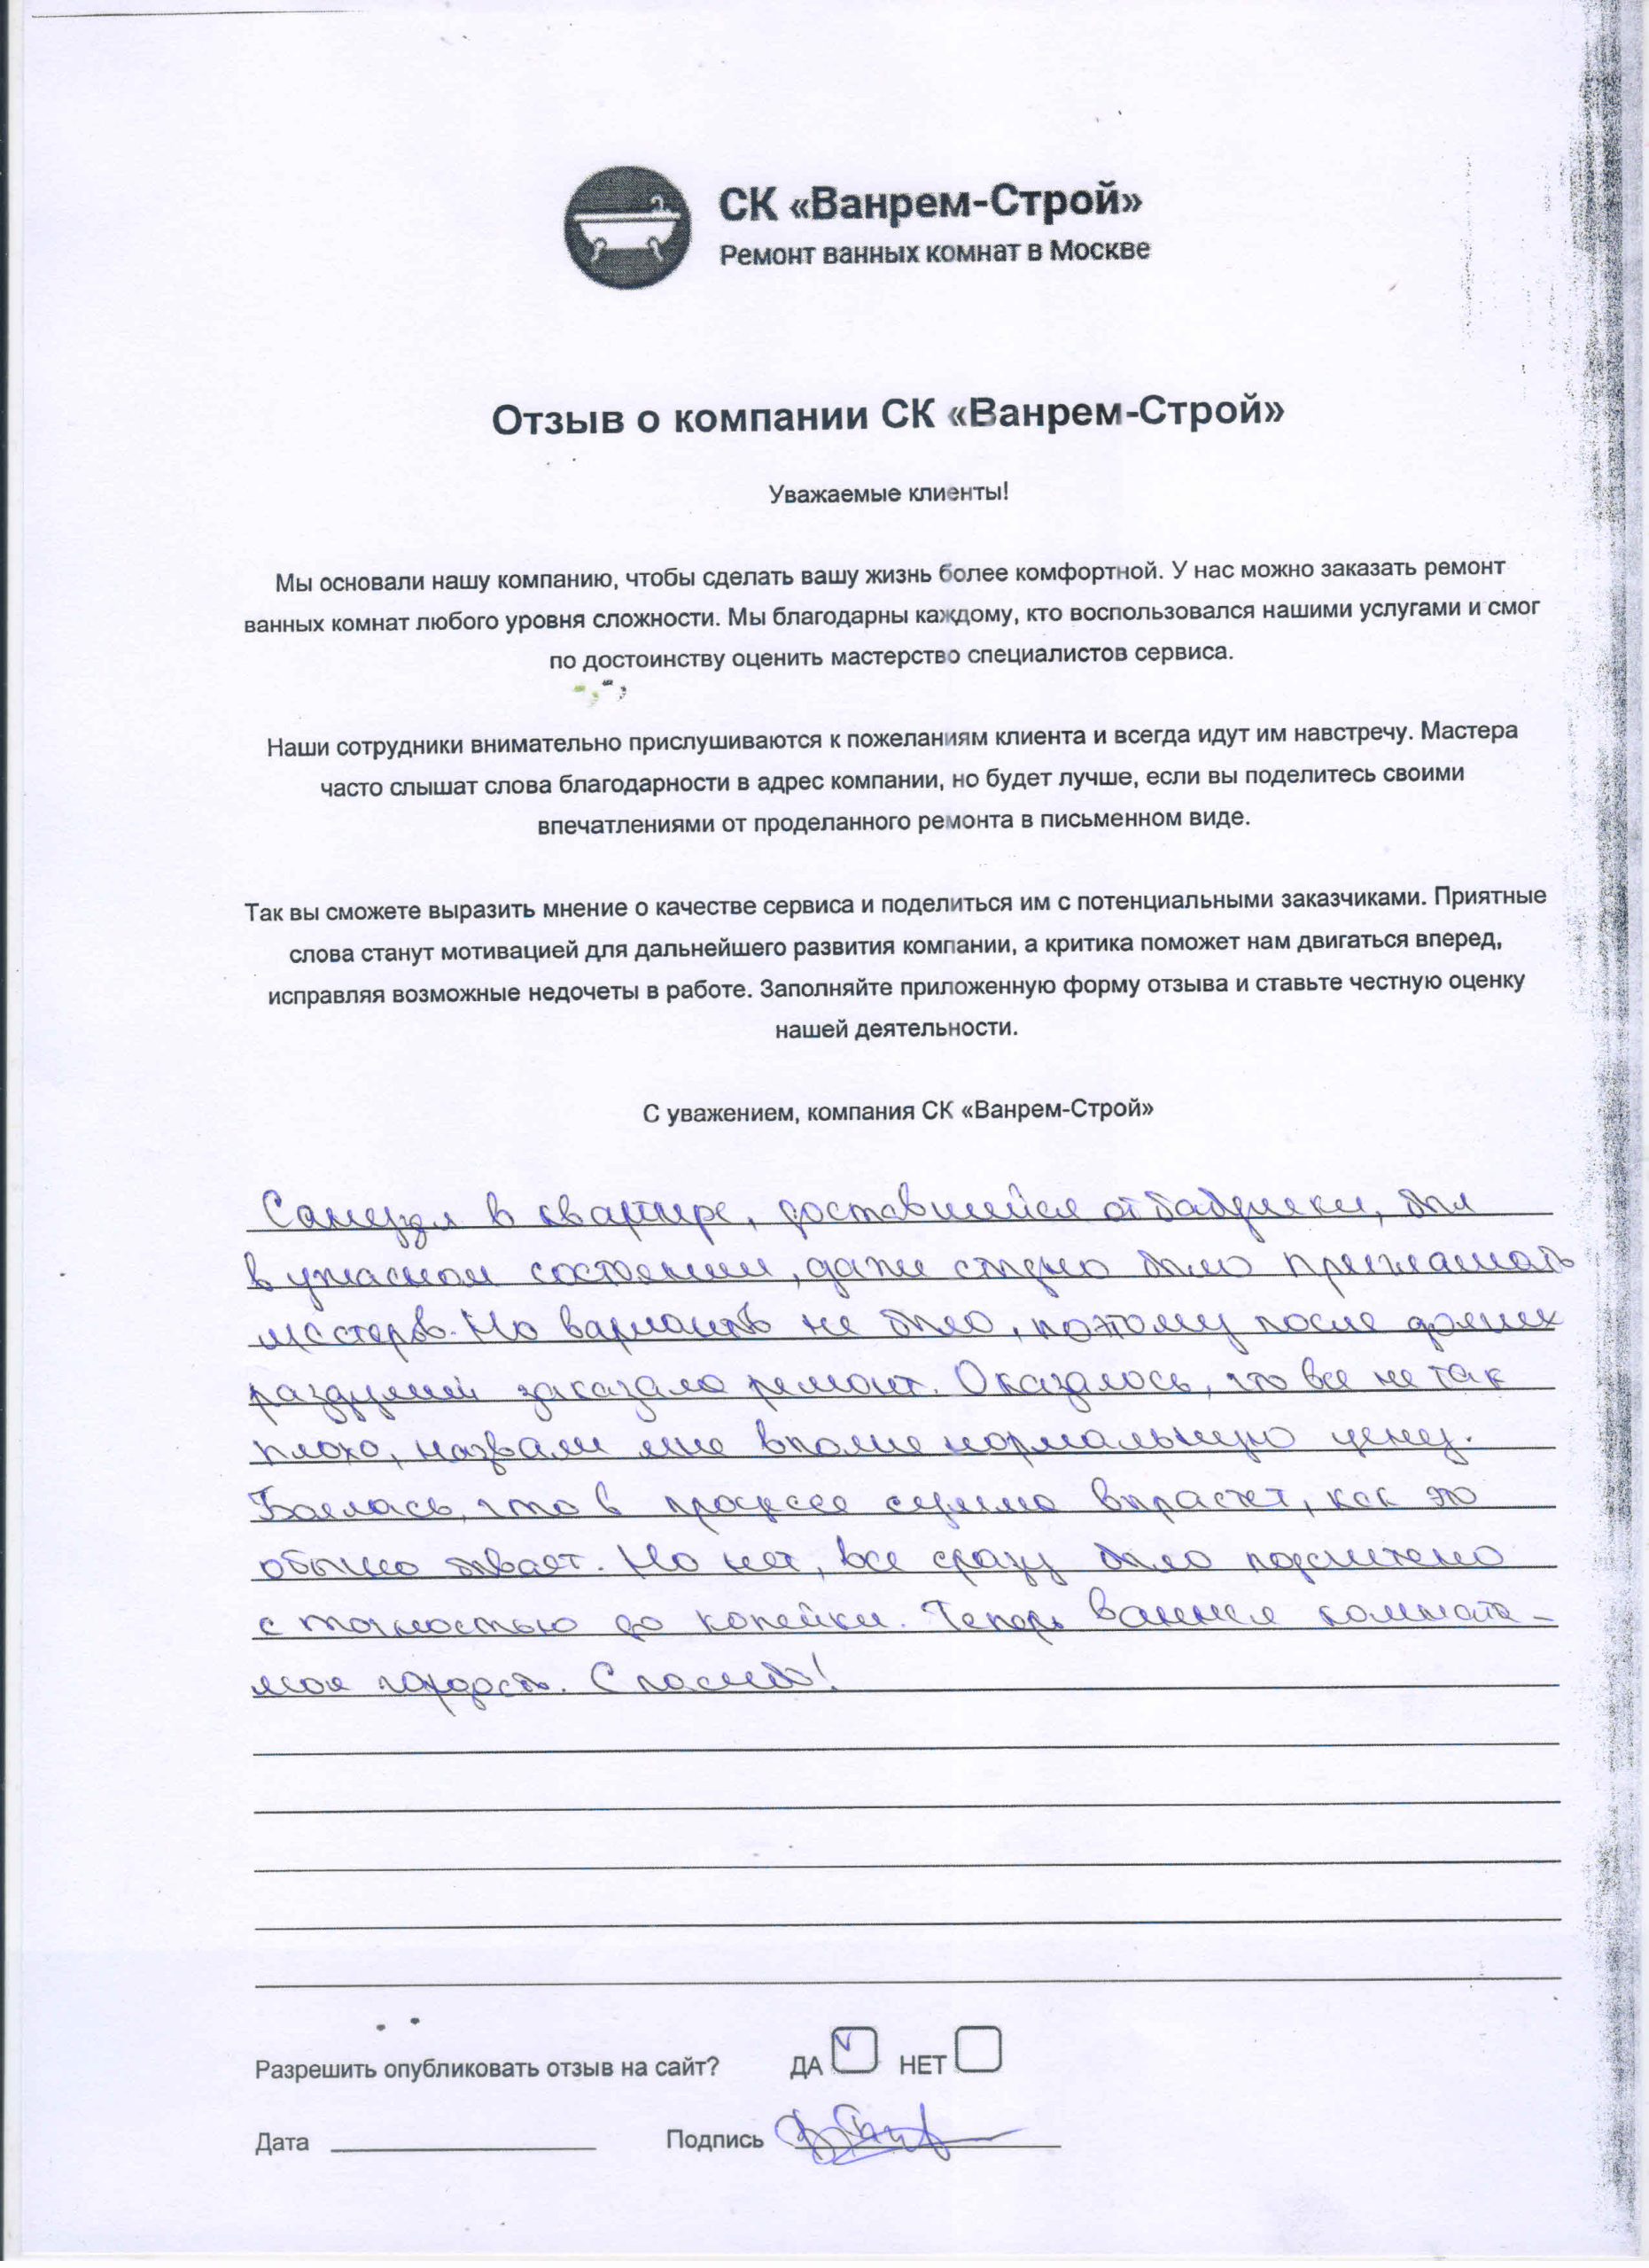 СК «Ванрем-Строй»
Ремонт ванных комнат в Москве
Отзыв о компании СК «Ванрем-Строй»
Уважаемые клиенты!
Мы основали нашу компанию, чтобы сделать вашу жизнь более комфортной. У нас можно заказать ремонт
ванных комнат любого уровня сложности. Мы благодарны каждому, кто воспользовался нашими услугами и смог
по достоинству оценить мастерство специалистов сервиса.
Наши сотрудники внимательно прислушиваются к пожеланиям клиента и всегда идут им навстречу. Мастера
часто слышат слова благодарности в адрес компании, но будет лучше, если вы поделитесь своими
впечатлениями от проделанного ремонта в письменном виде.
Так вы сможете выразить мнение о качестве сервиса и поделиться им с потенциальными заказчиками. Приятные
слова станут мотивацией для дальнейшего развития компании, а критика поможет нам двигаться вперед,
исправляя возможные недочеты в работе. Заполняйте приложенную форму отзыва и ставьте честную оценку
нашей деятельности.
С уважением, компания СК «Ванрем-Строй»
Санузел в квартире, доставшейся от бабушки, был
в ужасном состоянии, даже стыдно было приглашать
мастеров. Но вариантов не было, поэтому после долгих
раздумий заказала ремонт. Оказалось, что все не так
плохо, назвали мне вполне нормальную цену.
Боялась, что в процессе сумма вырастет, как это
обычно бывает. Но нет, все сразу было посчитано
с точностью до копейки. Теперь ванная комната -
моя гордость. Спасибо!
Разрешить опубликовать отзыв на сайт? ДА V НЕТ
Дата Подпись